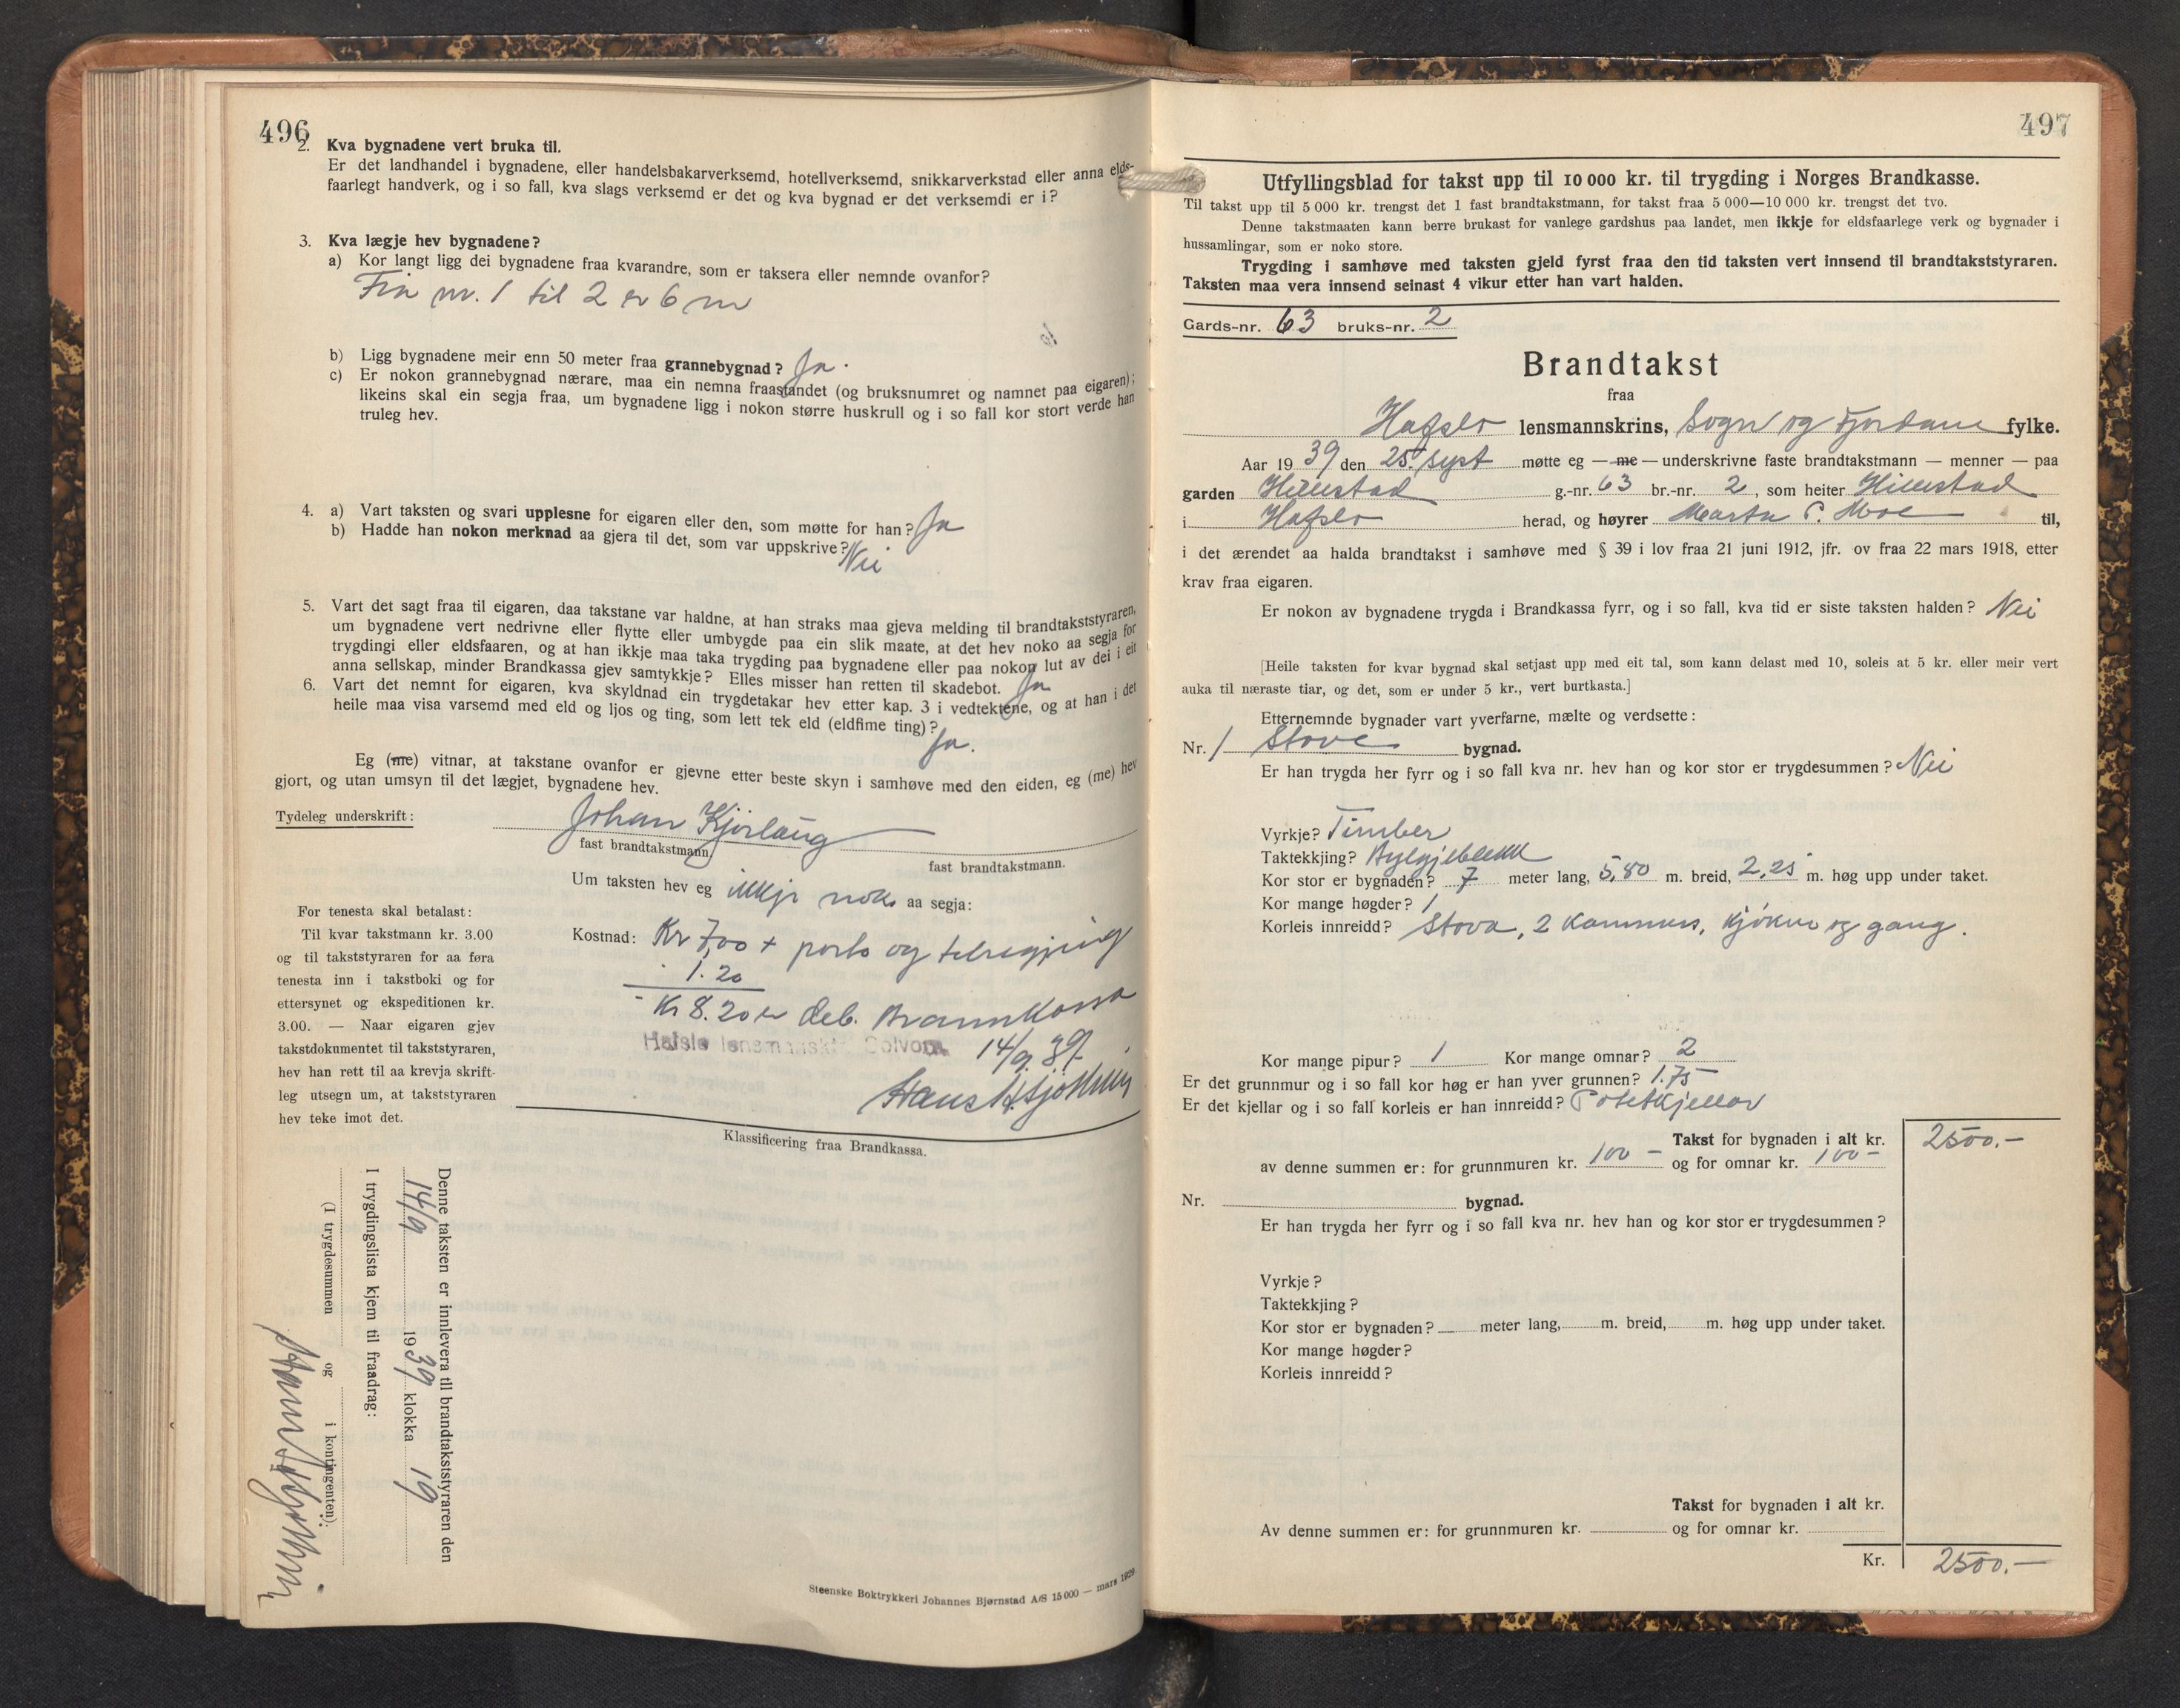 496
2. Kva bygnadene vert bruka til.
Er det landhandel i bygnadene, eller handelsbakarverksemd, hotellverksemd, snikkarverkstad eller anna elds-
faarlegt handverk, og i so fall, kva slags verksemd er det og kva bygnad er det verksemdi er i?
3. Kva lægje hev bygnadene?
a) Kor langt ligg dei bygnadene fraa kvarandre, som er taksera eller nemnde ovanfor?
Fra nr. 1 til 2 er 6 m
b) Ligg bygnadene meir enn 50 meter fraa grannebygnad? Ja.
c) Er nokon grannebygnad nærare, maa ein nemna fraastandet (og bruksnumret og namnet paa eigaren);
likeins skal ein segja fraa, um bygnadene ligg i nokon større huskrull og i so fall kor stort verde han
truleg hev.
4. a) Vart taksten og svari upplesne for eigaren eller den, som møtte for han? Ja
b) Hadde han nokon merknad aa gjera til det, som var uppskrive? Nei
5. Vart det sagt fraa til eigaren, daa takstane var haldne, at han straks maa gjeva melding til brandtakststyraren,
um bygnadene vert nedrivne eller flytte eller umbygde paa ein slik maate, at det hev noko aa segja for
trygdingi eller eldsfaaren, og at han ikkje maa taka trygding paa bygnadene eller paa nokon lut av dei i eit
anna sellskap, minder Brandkassa gjev samtykkje? Elles misser han retten til skadebot. Ja
6. Vart det nemnt for eigaren, kva skyldnad ein trygdetakar hev etter kap. 3 i vedtektene, og at han i det
heile maa visa varsemd med eld og ljos og ting, som lett tek eld (eldfime ting)?
Ja.
Eg (me) vitnar, at takstane ovanfor er gjevne etter beste skyn i samhøve med den eiden, eg (me) hev
gjort, og utan umsyn til det lægjet, bygnadene hev.
Tydeleg underskrift: Johan Kjørlaug
fast brandtakstmann, fast brandtakstmann.
Um taksten hev eg ikkje noko aa segja:
For tenesta skal betalast:
Til kvar takstmann kr. 3.00
og til takststyraren for aa føra
tenesta inn i takstboki og for
ettersynet og ekspeditionen kr.
3.00. — Naar eigaren gjev
takstdokumentet til takststyraren,
hev han rett til aa krevja skrift-
leg utsegn um, at takststyraren
hev teke imot det.
Kostnad: Kr 7,00 + porto og
1.20
Kr 8.20 er deb. Brannkassa
Hafslo lensmannskr. Solvorn 14/9 39.
Klassificering fraa Brandkassa.
Denne taksten er innlevera til brandtakststyraren den
14/9 1939 klokka 19
I trygdingslista kjem til fraadrag:
(I trygdesummen og i kontingenten):
Steenske Boktrykkeri Johannes Bjørnstad A/S 15 000 — mars 1929
497
Utfyllingsblad for takst upp til 10 000 kr. til trygding i Norges Brandkasse.
Til takst upp til 5 000 kr. trengst det 1 fast brandtakstmann, for takst fraa 5 000—10 000 kr. trengst det tvo.
Denne takstmaaten kann berre brukast for vanlege gardshus paa landet, men ikkje for eldsfaarlege verk og bygnader i
hussamlingar, som er noko store.
Trygding i samhøve med taksten gjeld fyrst fraa den tid taksten vert innsend til brandtakststyraren.
Taksten maa vera innsend seinast 4 vikur etter han vart halden.
Gards-nr. 63 bruks-nr. 2
Brandtakst
fraa
Hafslo lensmannskrins, Sogn og Fjordane fylke.
Aar 1939 den 25. sept møtte eg — me — underskrivne faste brandtakstmann — menner — paa
garden Hillestad g.-nr. 63 br.-nr. 2, som heiter Hillestad
i Hafslo herad, og høyrer P. Moe til,
i det ærendet aa halda brandtakst i samhøve med § 39 i lov fraa 21 juni 1912, jfr. ov fraa 22 mars 1918, etter
krav fraa eigaren.
Er nokon av bygnadene trygda i Brandkassa fyrr, og i so fall, kva tid er siste taksten halden? Nei
[Heile taksten for kvar bygnad skal setjast upp med eit tal, som kann delast med 10, soleis at 5 kr. eller meir vert
auka til næraste tiar, og det, som er under 5 kr., vert burtkasta.]
Etternemnde bygnader vart yverfarne, mælte og verdsette:
Nr. 1 Stove bygnad.
Er han trygda her fyrr og i so fall kva nr. hev han og kor stor er trygdesummen? Nei
Vyrkje? Timber
Taktekkjing? Bylgjeblekk
Kor stor er bygnaden? 7 meter lang, 5,80 m. breid, 2,25 m. høg upp under taket.
Kor mange høgder? 1
Korleis innreidd? Stova, 2 kammers, kjøken og gang.
Kor mange pipur? 1 Kor mange omnar? 2
Er det grunnmur og i so fall kor høg er han yver grunnen? 1.75
Er det kjellar og i so fall korleis er han innreidd? Potetkjellar
Takst for bygnaden i alt kr. 2500.-
av denne summen er: for grunnmuren kr. 100 - og for omnar kr. 100 -
Nr. bygnad.
Er han trygda her fyrr og i so fall kva nr. hev han og kor stor er trygdesummen?
Vyrkje?
Taktekkjing?
Kor stor er bygnaden? meter lang, m. breid, m. høg upp under taket.
Kor mange høgder?
Korleis innreidd?
Takst for bygnaden i alt kr.
Av denne summen er: for grunnmuren kr. og for omnar kr.
Kr. 2500.-